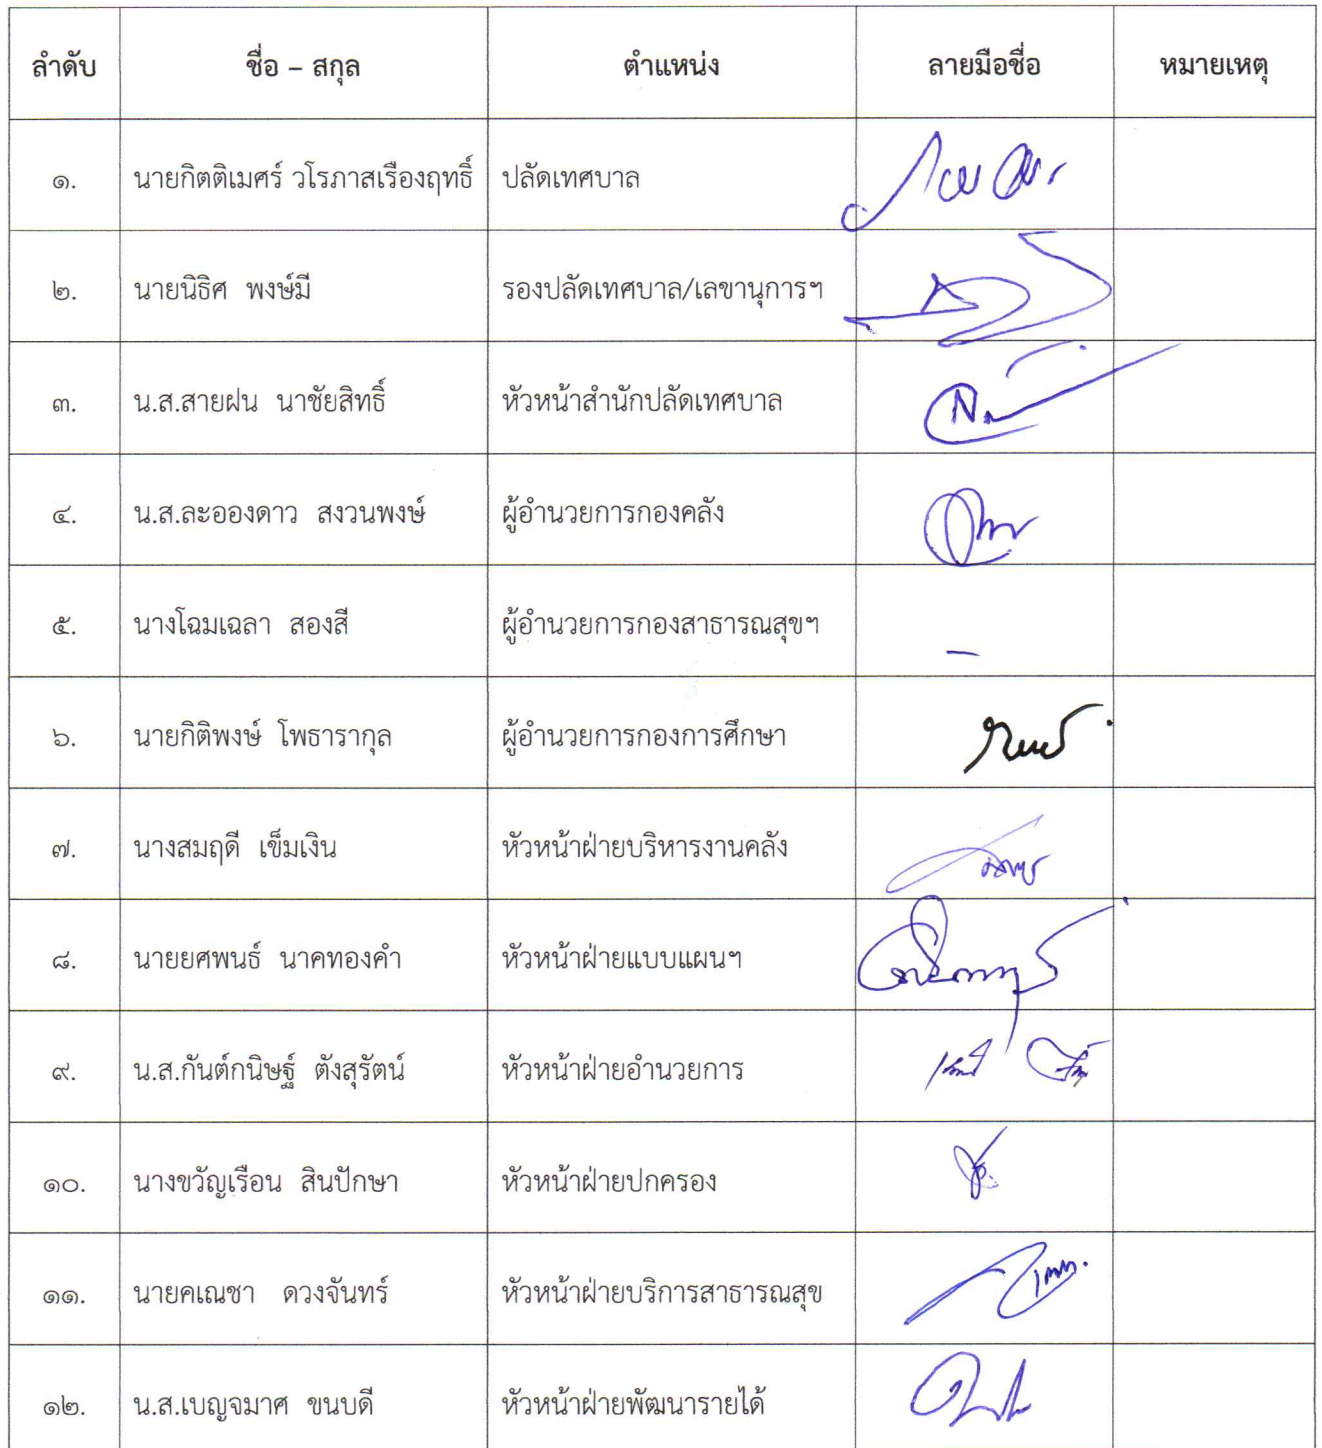 ลำดับ ชื่อ – สกุล ตำแหน่ง ลายมือชื่อ หมายเหตุ
๑. นายกิตติเมศร์ วโรภาสเรืองฤทธิ์ ปลัดเทศบาล
๒. นายนิธิศ พงษ์มี รองปลัดเทศบาล/เลขานุการฯ
๓. น.ส.สายฝน นาชัยสิทธิ์ หัวหน้าสำนักปลัดเทศบาล
๔. น.ส.ละอองดาว สงวนพงษ์ ผู้อำนวยการกองคลัง
๕. นางโฉมเฉลา สองสี ผู้อำนวยการกองสาธารณสุขฯ –
๖. นายกิติพงษ์ โพธารากุล ผู้อำนวยการกองการศึกษา
๗. นางสมฤดี เข็มเงิน หัวหน้าฝ่ายบริหารงานคลัง
๘. นายยศพนธ์ นาคทองคำ หัวหน้าฝ่ายแบบแผนฯ
๙. น.ส.กันต์กนิษฐ์ ตังสุรัตน์ หัวหน้าฝ่ายอำนวยการ
๑๐. นางขวัญเรือน สินปักษา หัวหน้าฝ่ายปกครอง
๑๑. นายคเณชา ดวงจันทร์ หัวหน้าฝ่ายบริการสาธารณสุข
๑๒. น.ส.เบญจมาศ ขนบดี หัวหน้าฝ่ายพัฒนารายได้